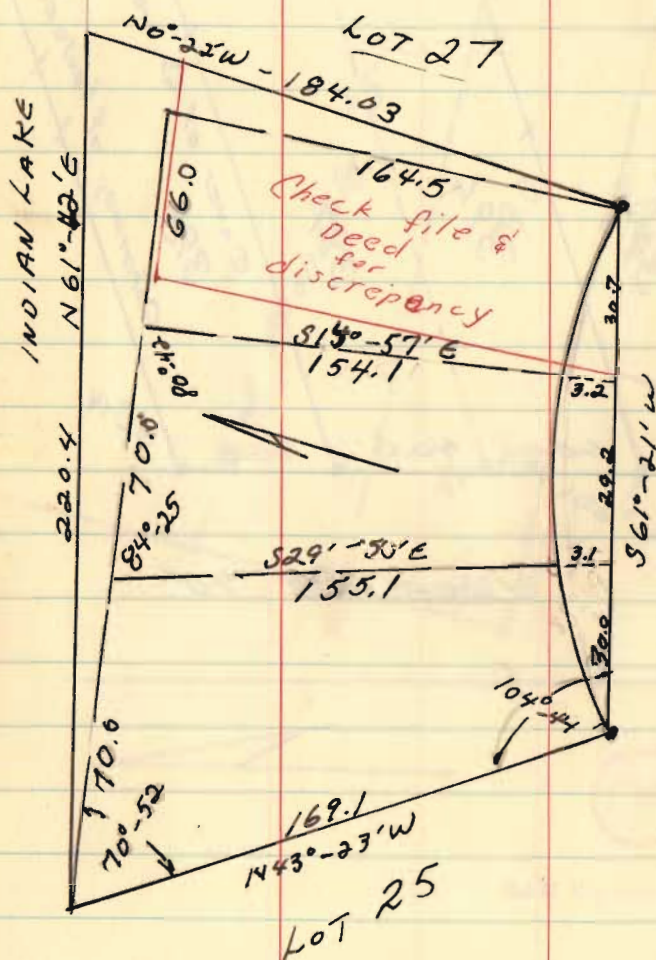 LOT 27
N0°-22'W - 184.03
INDIAN LAKE
N61°-42'E
220.4
164.5
66.0
Check file &
Deed
for
discrepancy
30.7
S15°-57'E
154.1
3.2
80°-42
70.0
84°-25
29.2
S61°-21'W
S29'-50'E
155.1
3.1
30.0
104°-44'
70.6
70°-52
169.1
N43°-23'W
LOT 25